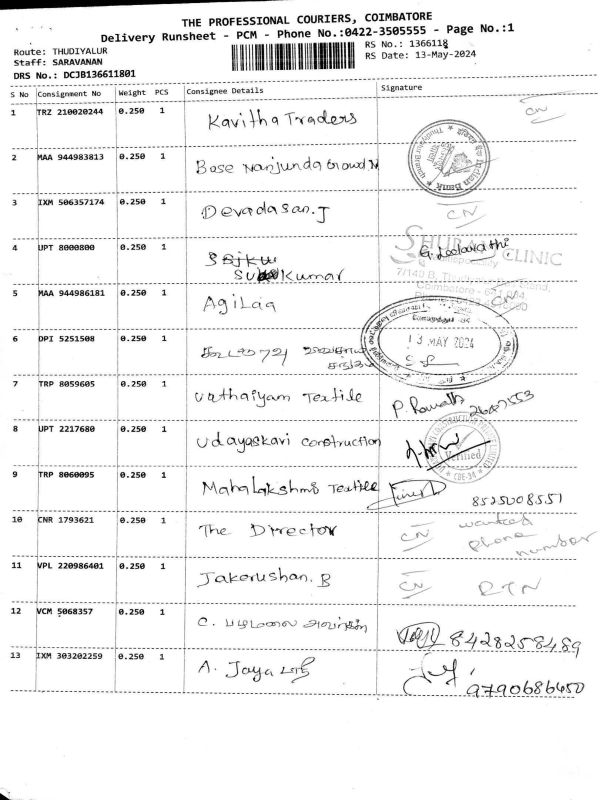 THE PROFESSIONAL COURIERS, COIMBATORE
Delivery Runsheet - PCM - Phone No.:0422-3505555 - Page No.:1
Route: THUDIYALUR
RS No.: 1366118
Staff: SARAVANAN
RS Date: 13-May-2024
DRS No.: DCJB136611801
S No Consignment No Weight PCS Consignee Details Signature
1 TRZ 210020244 0.250 1 Kavitha Traders CN
2 MAA 944983813 0.250 1 Base Nanjunda Indian Bank
3 IXM 506357174 0.250 1 Devadasan.J CN
4 UPT 8000800 0.250 1 Kumar G. CLINIC
5 MAA 944986181 0.250 1 Agilaa CN
6 DPI 5251508 0.250 1 13 MAY 2024
7 TRP 8059605 0.250 1 Vathaiyam Textile P.
8 UPT 2217680 0.250 1 Udayaskavi construction Verified
9 TRP 8060095 0.250 1 Mahalakshmi Textile 8525008551
10 CNR 1793621 0.250 1 The Director CN wanted
phone
number
11 VPL 220986401 0.250 1 Jakerushan. B CN RTN
12 VCM 5068357 0.250 1 C. பழமலை அவர்கள் 8428258489
13 IXM 303202259 0.250 1 A. Jaya 9790686450